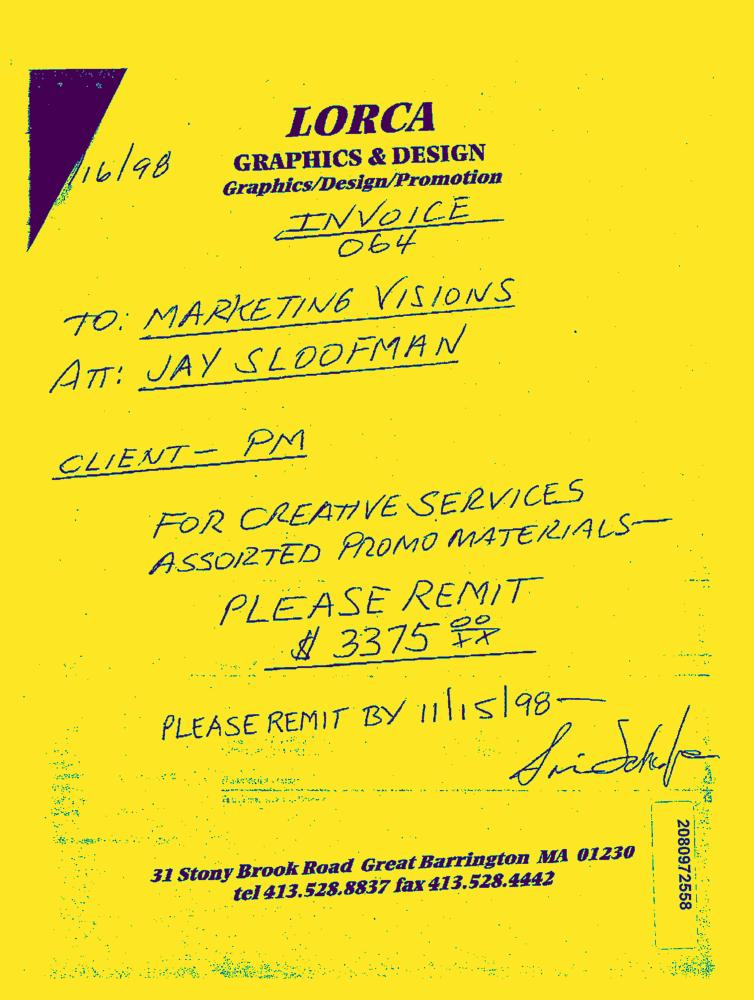 LORCA
GRAPHICS & DESIGN
Graphics/Design/Promotion
/16/98
INVOICE
064
TO: MARKETING VISIONS
ATT: JAY SLOOFMAN
CLIENT - PM
FOR CREATIVE SERVICES
ASSORTED PROMO MATERIALS—
PLEASE REMIT
$ 3375 00/XX
PLEASE REMIT BY 11/15/98—
31 Stony Brook Road Great Barrington MA 01230
tel 413.528.8837 fax 413.528.4442
2080972558